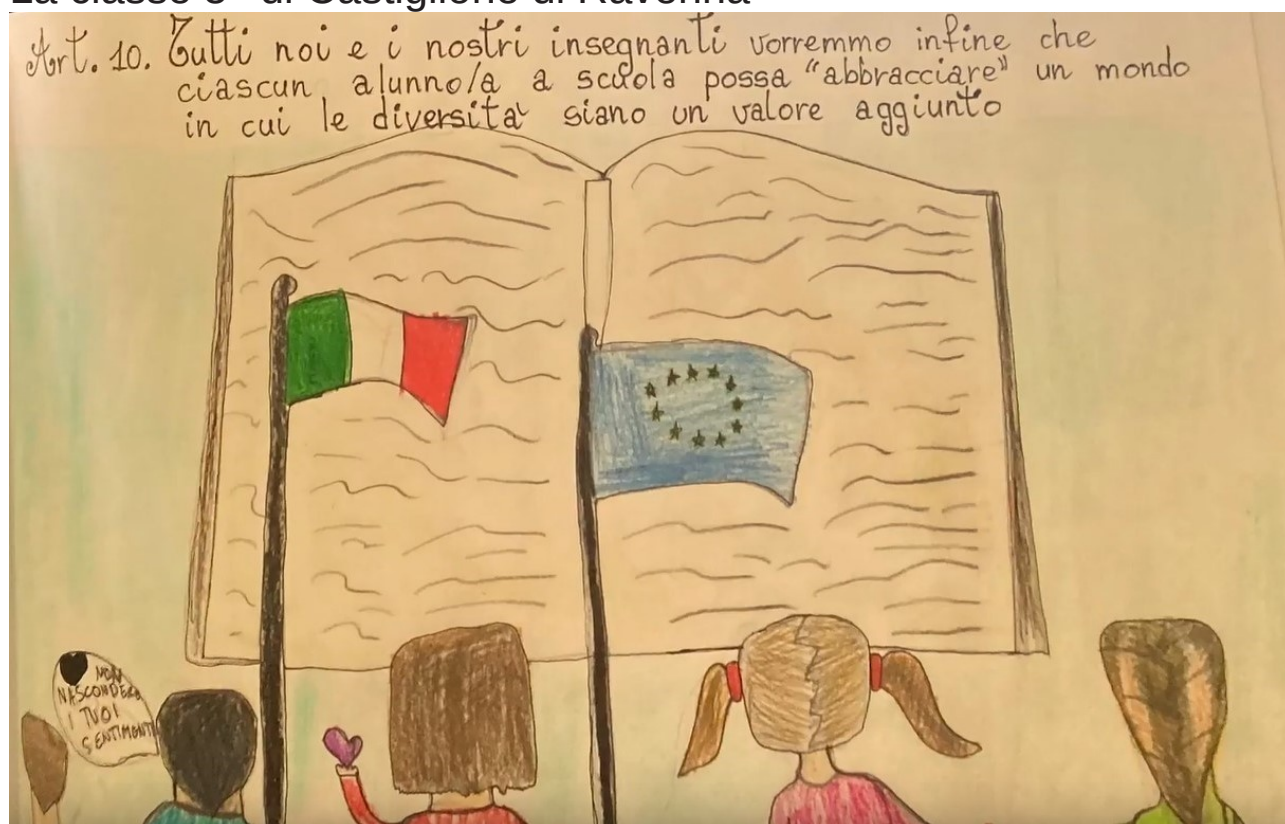 di Castiglione di Ravenna
Art. 10. Tutti noi e i nostri insegnanti vorremmo infine che
ciascun alunno/a a scuola possa "abbracciare" un mondo
in cui le diversità siano un valore aggiunto
NON
NASCONDERE
I TUOI
SENTIMENTI